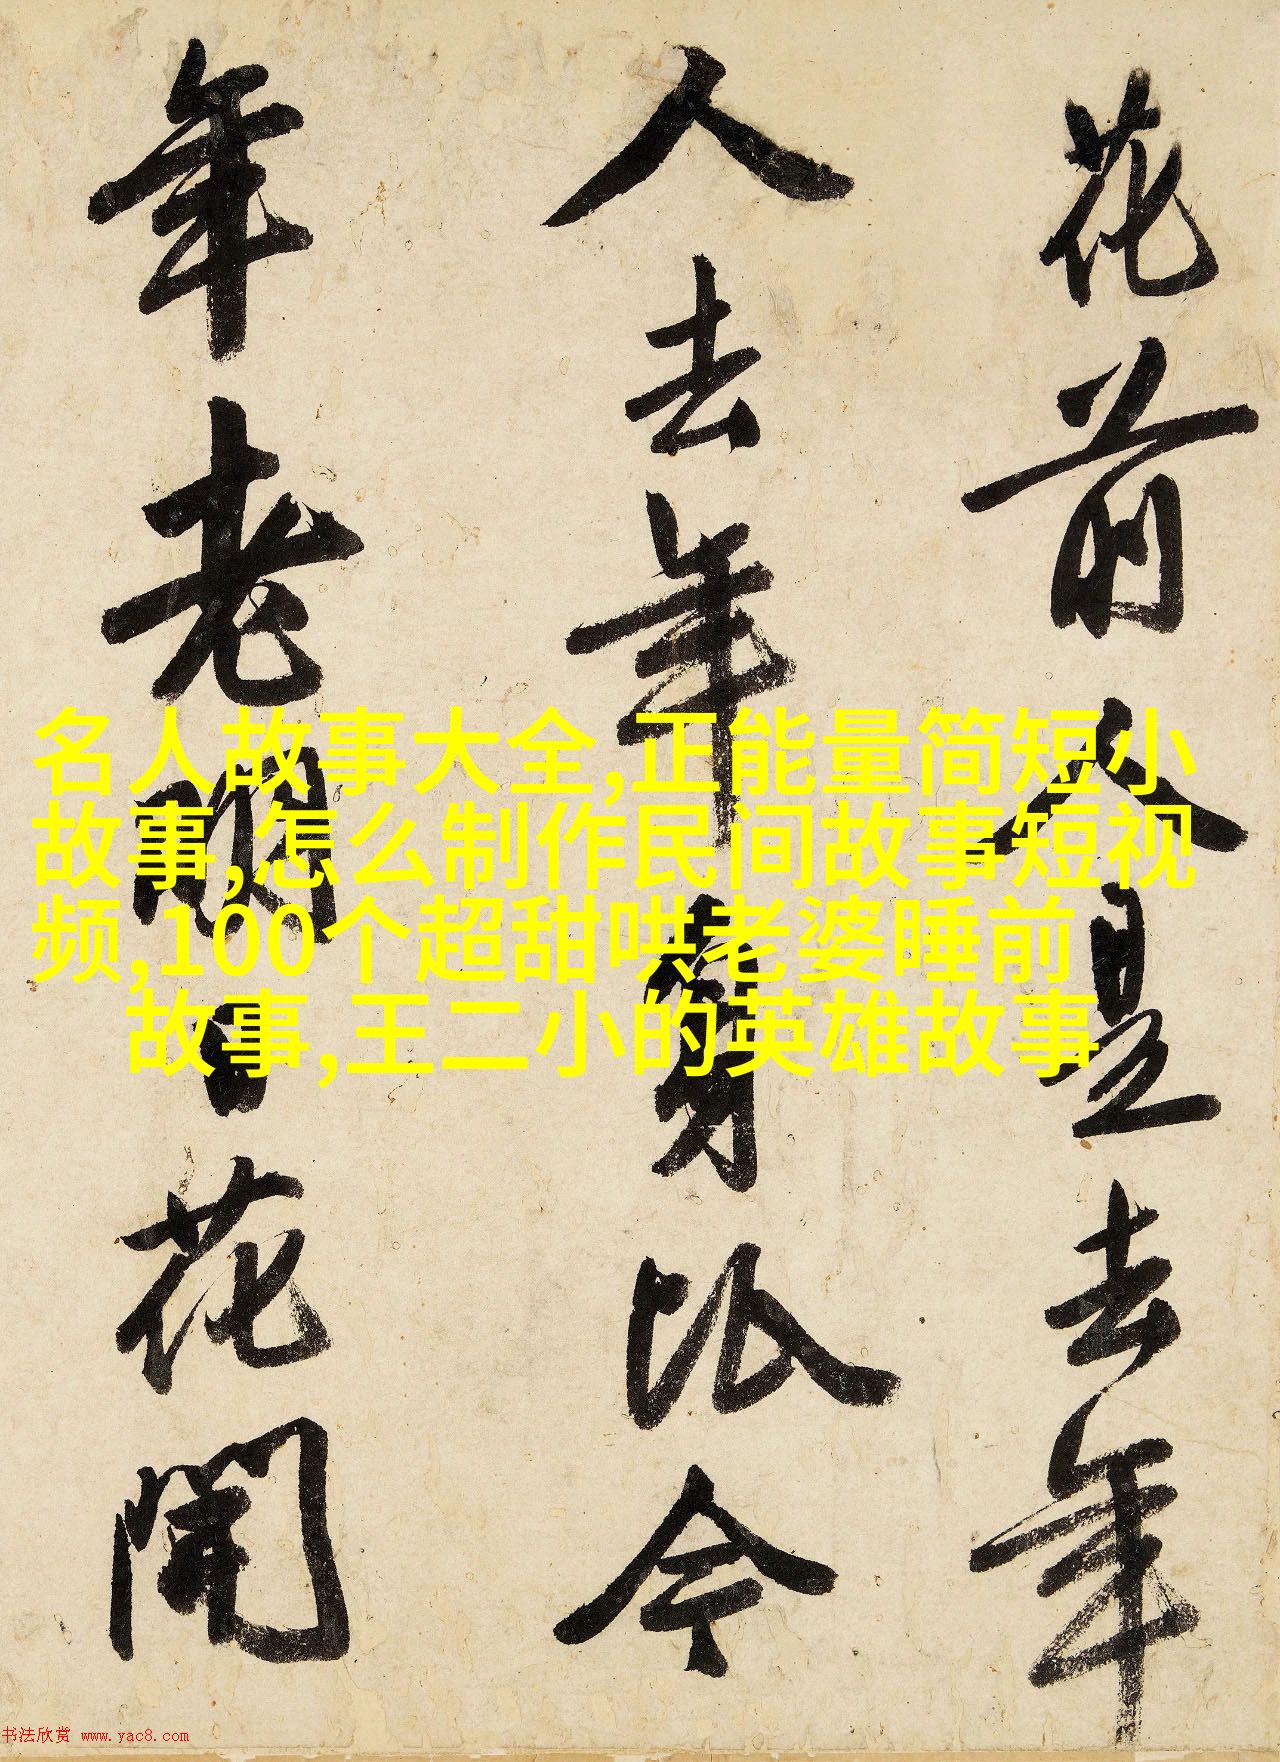 花前人是去年
人去年身比今
年老明日花開
名人故事大全,正能量简短小
故事,怎么制作民间故事短视
频,100个超甜哄老婆睡前
故事,王二小的英雄故事
书法欣赏 www.yac8.com